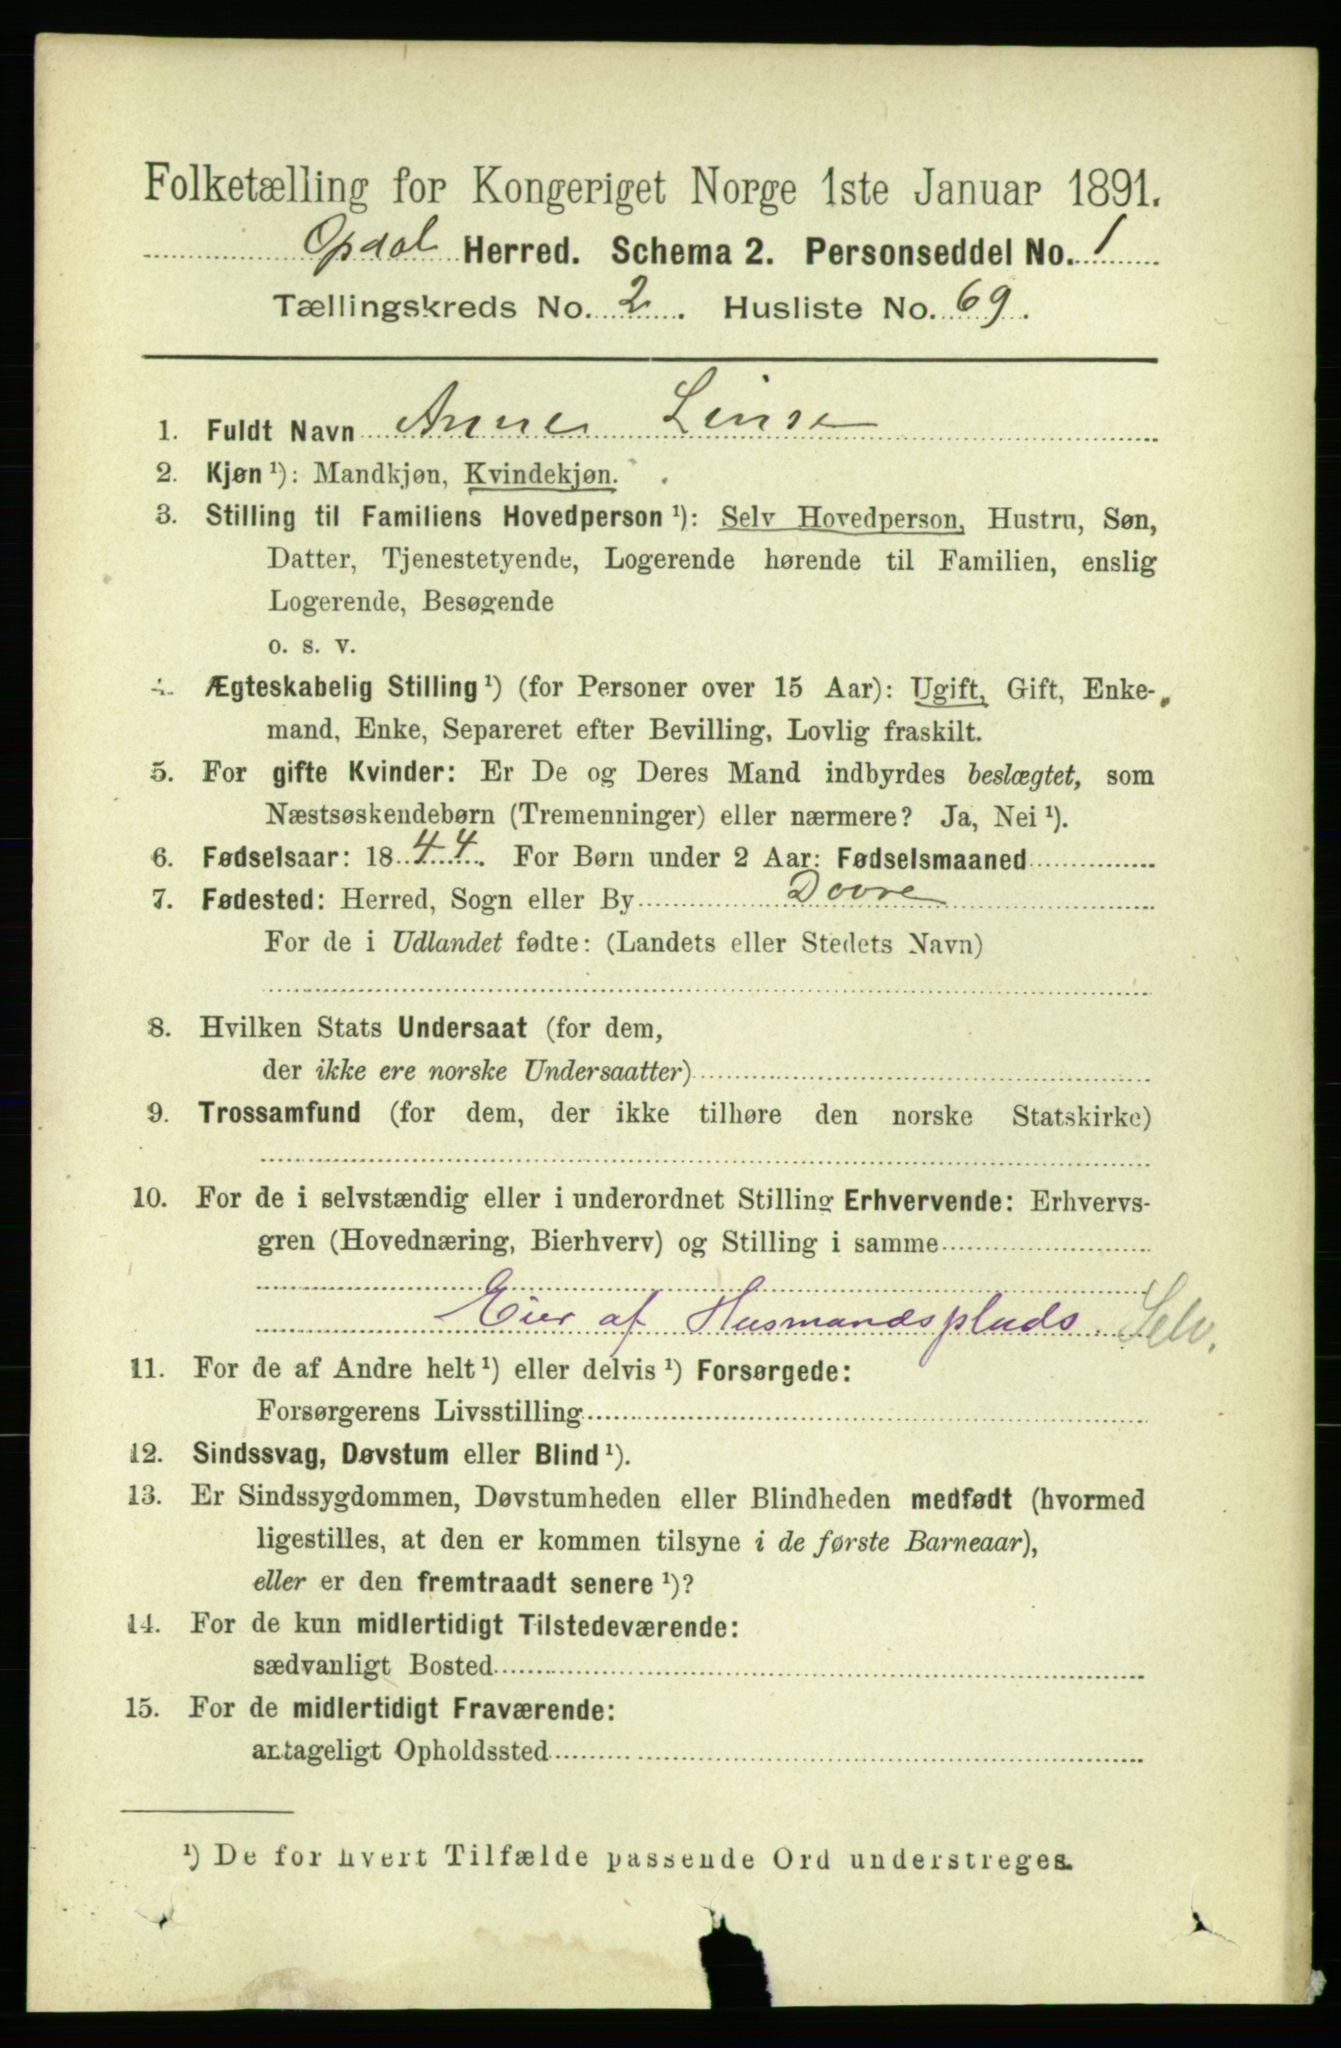 Folketælling for Kongeriget Norge 1ste Januar 1891.
Opdal Herred. Schema 2. Personseddel No. 1
Tællingskreds No. 2. Husliste No. 69.
1. Fuldt Navn Anne
2. Kjøn ¹): Mandkjøn, Kvindekjøn.
3. Stilling til Familiens Hovedperson ¹): Selv Hovedperson, Hustru, Søn,
Datter, Tjenestetyende, Logerende hørende til Familien, enslig
Logerende, Besøgende
o. s. v.
4. Ægteskabelig Stilling ¹) (for Personer over 15 Aar): Ugift, Gift, Enke-
mand, Enke, Separeret efter Bevilling, Lovlig fraskilt.
5. For gifte Kvinder: Er De og Deres Mand indbyrdes beslægtet, som
Næstsøskendebørn (Tremenninger) eller nærmere? Ja, Nei ¹).
6. Fødselsaar: 1844. For Børn under 2 Aar: Fødselsmaaned
7. Fødested: Herred, Sogn eller By Dovre
For de i Udlandet fødte: (Landets eller Stedets Navn)
8. Hvilken Stats Undersaat (for dem,
der ikke ere norske Undersaatter)
9. Trossamfund (for dem, der ikke tilhøre den norske Statskirke)
10. For de i selvstændig eller i underordnet Stilling Erhvervende: Erhvervs-
gren (Hovednæring, Bierhverv) og Stilling i samme
Eier af Husmandsplads. Selv.
11. For de af Andre helt ¹) eller delvis ¹) Forsørgede:
Forsørgerens Livsstilling
12. Sindssvag, Døvstum eller Blind ¹).
13. Er Sindssygdommen, Døvstumheden eller Blindheden medfødt (hvormed
ligestilles, at den er kommen tilsyne i de første Barneaar),
eller er den fremtraadt senere ¹)?
14. For de kun midlertidigt Tilstedeværende:
sædvanligt Bosted
15. For de midlertidigt Fraværende:
antageligt Opholdssted
¹) De for hvert Tilfælde passende Ord understreges.